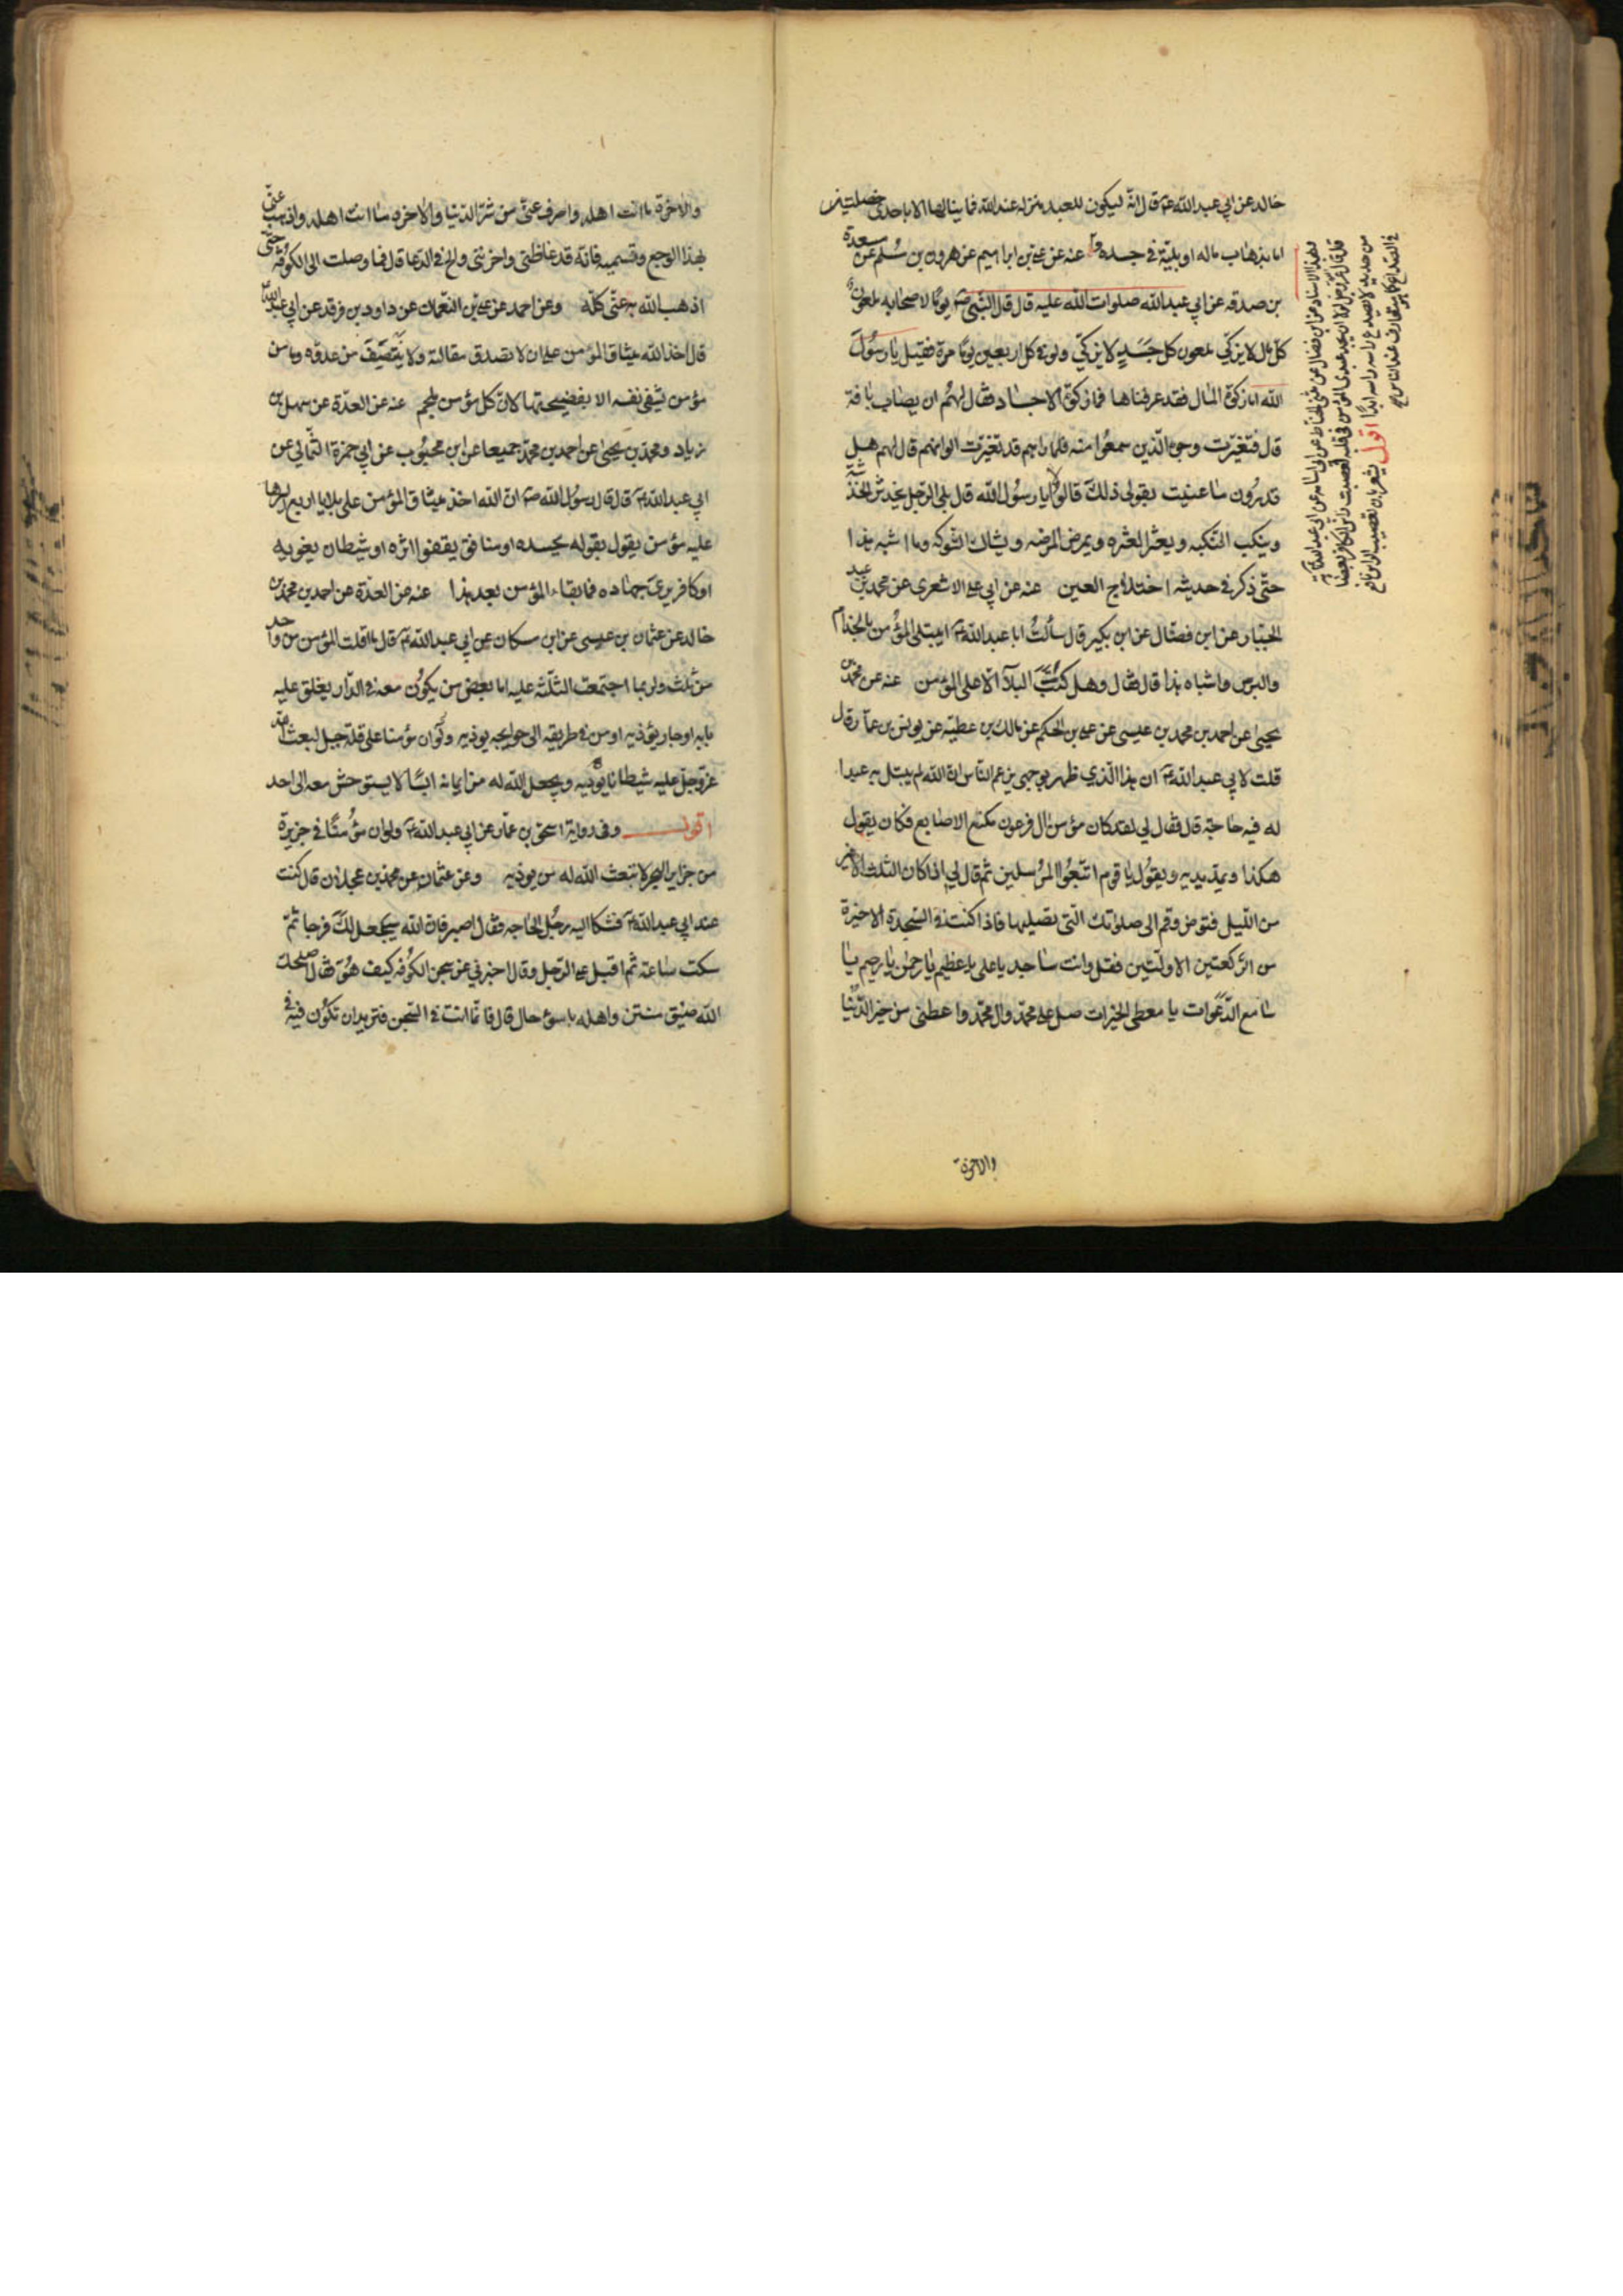 خالد عن ابي عبد الله عم قال انه ليكون للعبد منزلة عند الله فما ينالها الا باحدى خصلتين
اما بذهاب ماله او ببلية في جسده عنه عن علي بن ابراهيم عن هرون بن مسلم عن مسعدة
بن صدقه عن ابي عبد الله صلوات الله عليه قال قال النبي ص يوما لاصحابه ملعون
كل مال لا يزكي ملعون كل جسد لا يزكي ولو في كل اربعين يوما مرة فقيل يا رسول
الله اما زكوة المال فقد عرفناها فما زكوة الاجساد فقال لهم ان يصاب بافة
قال فتغيرت وجوه الذين سمعوا منه فلما راهم قد تغيرت الوانهم قال لهم هل
تدرون ما عنيت بقولي ذلك قالوا لا يا رسول الله قال بلى الرجل يخدش الخدشة
وينكب النكبه ويعثر العثره ويمرض المرضه ويشاك الشوكه وما اشبه هذا
حتى ذكر في حديثه اختلاج العين عنه عن ابي علي الاشعري عن محمد بن عبد
الجبار عن ابن فضال عن ابن بكير قال سألت ابا عبد الله عم ايبتلى المؤمن بالجذام
والبرص واشباه هذا قال فقال وهل كتب البلآ الا على المؤمن عنه عن محمد بن
يحيى عن احمد بن محمد بن عيسى عن علي بن الحكم عن مالك بن عطيه عن يونس بن عمار قال
قلت لابي عبد الله عم ان هذا الذي ظهر بوجهي يزعم الناس ان الله لم يبتل به عبدا
له فيه حاجة قال فقال لي لقد كان مؤمن ال فرعون مكنع الاصابع فكان يقول
هكذا ويمد يديه ويقول يا قوم اتبعوا المرسلين ثم قال لي اذا كان الثلث الاخير
من الليل فتوض وقم الى صلوتك التي تصليها فاذا كنت في السجدة الاخيرة
من الركعتين الاولتين فقل وانت ساجد يا علي يا عظيم يا رحمن يا رحيم يا
سامع الدعوات يا معطي الخيرات صل على محمد وال محمد واعطني من خير الدنيا
والاخرة
وبهذا الاسناد عن ابن فضال عن مثنى الحناط عن ابي اسامه عن ابي عبد الله عم
قال قال الله عز وجل لولا ان يجد عبدي المؤمن في قلبه لعصبت راس الكافر بعصابة
من حديد لا يصدع راسه ابدا اقول
والاخرة ما انت اهله واصرف عني من شر الدنيا والاخرة ما انت اهله واذهب عني
بهذا الوجع وتسميه فانه قد غاظني واحزنني والح في الدعا قال فما وصلت الى الكوفه حتى
اذهب الله به عني كله وعن احمد عن علي بن النعمان عن داود بن فرقد عن ابي عبد الله عم
قال اخذ الله ميثاق المؤمن على ان لا تصدق مقالته ولا ينتصف من عدوه وما من
مؤمن يشفي نفسه الا بفضيحتها لان كل مؤمن ملجم عنه عن العدة عن سهل بن
زياد ومحمد بن يحيى عن احمد بن محمد جميعا عن ابن محبوب عن ابي حمزة الثمالي عن
ابي عبد الله عم قال قال رسول الله ص ان الله اخذ ميثاق المؤمن على بلايا اربع ايسرها
عليه مؤمن يقول بقوله يحسده او منافق يقفوا اثره او شيطان يغويه
او كافر يرى جهاده فما بقاء المؤمن بعد هذا عنه عن العدة عن احمد بن محمد بن
خالد عن عثمان بن عيسى عن ابن مسكان عن ابي عبد الله عم قال ما افلت المؤمن من واحدة
من ثلث ولربما اجتمعت الثلثة عليه اما بعض من يكون معه في الدار يغلق عليه
بابه او جار يؤذيه او من في طريقه الى حوايجه يوذيه ولو ان مؤمنا على قلة جبل لبعث الله
عز وجل عليه شيطانا يوذيه ويجعل الله له من ايمانه انسا لا يستوحش معه الى احد
اقول وفي رواية اسحق بن عمار عن ابي عبد الله عم ولو ان مؤمنا في جزيرة
من جزاير البحر لابتعث الله له من يوذيه وعن عثمان عن محمد بن عجلان قال كنت
عند ابي عبد الله عم فشكا اليه رجل الحاجه فقال اصبر فان الله سيجعل لك فرجا ثم
سكت ساعة ثم اقبل على الرجل وقال اخبرني عن سجن الكوفه كيف هو فقال اصلحك
الله ضيق منتن واهله باسوء حال قال فانما انت في السجن فتريد ان تكون فيه في